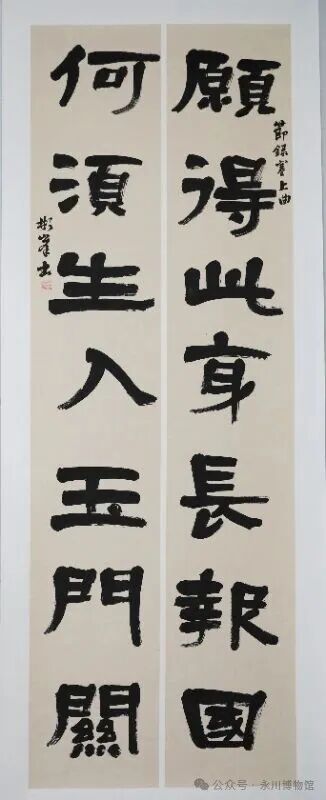 願得此身長報國
節録塞上曲
何須生入玉門關
彬峯書
公众号·永川博物馆